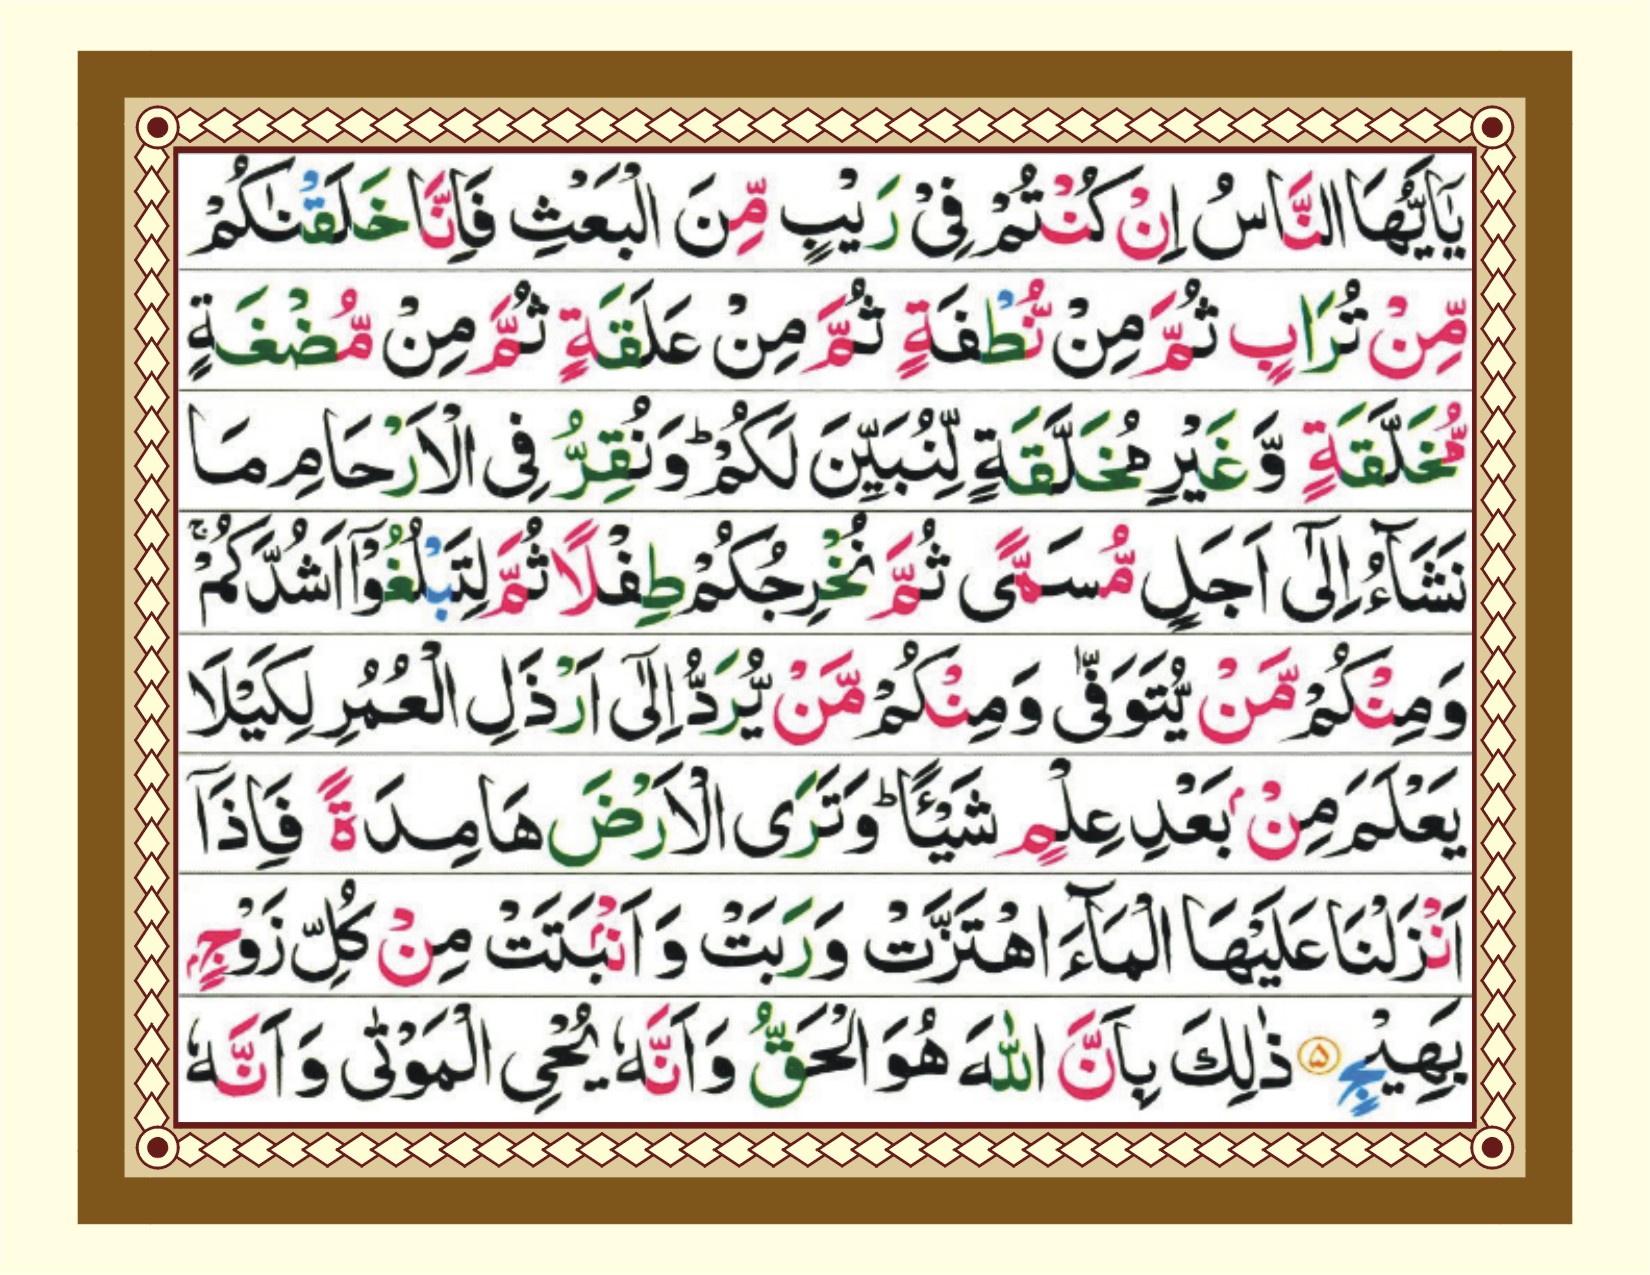 يٰۤاَيُّهَا النَّاسُ اِنْ كُنْتُمْ فِىْ رَيْبٍ مِّنَ الْبَعْثِ فَاِنَّا خَلَقْنٰكُمْ
مِّنْ تُرَابٍ ثُمَّ مِنْ نُّطْفَةٍ ثُمَّ مِنْ عَلَقَةٍ ثُمَّ مِنْ مُّضْغَةٍ
مُّخَلَّقَةٍ وَّ غَيْرِ مُخَلَّقَةٍ لِّنُبَيِّنَ لَكُمْ ؕ وَنُقِرُّ فِى الْاَرْحَامِ مَا
نَشَآءُ اِلٰٓى اَجَلٍ مُّسَمًّى ثُمَّ نُخْرِجُكُمْ طِفْلًا ثُمَّ لِتَبْلُغُوْۤا اَشُدَّكُمْ ۚ
وَمِنْكُمْ مَّنْ يُّتَوَفّٰى وَمِنْكُمْ مَّنْ يُّرَدُّ اِلٰٓى اَرْذَلِ الْعُمُرِ لِكَيْلَا
يَعْلَمَ مِنْۢ بَعْدِ عِلْمٍ شَيْـًٔا ؕ وَتَرَى الْاَرْضَ هَامِدَةً فَاِذَاۤ
اَنْزَلْنَا عَلَيْهَا الْمَآءَ اهْتَزَّتْ وَرَبَتْ وَ اَنْۢبَتَتْ مِنْ كُلِّ زَوْجٍۭ
بَهِيْجٍ ۵ ذٰلِكَ بِاَنَّ اللّٰهَ هُوَ الْحَقُّ وَ اَنَّهٗ يُحْىِ الْمَوْتٰى وَ اَنَّهٗ